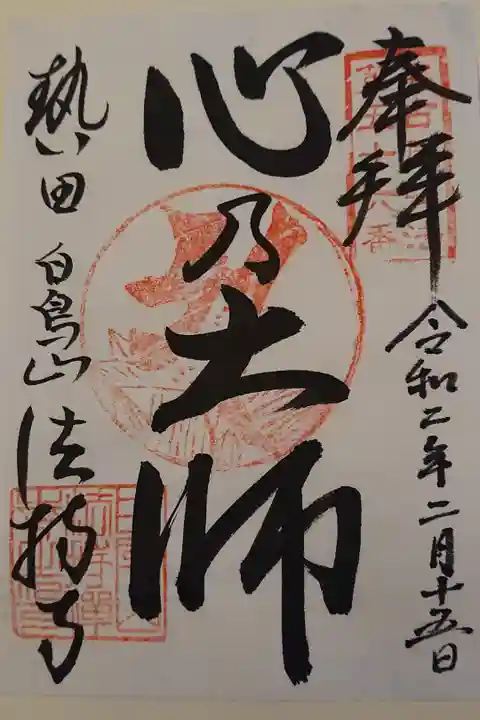 奉拝 令和二年二月十五日
心乃大師
熱田 白鳥山 法持寺